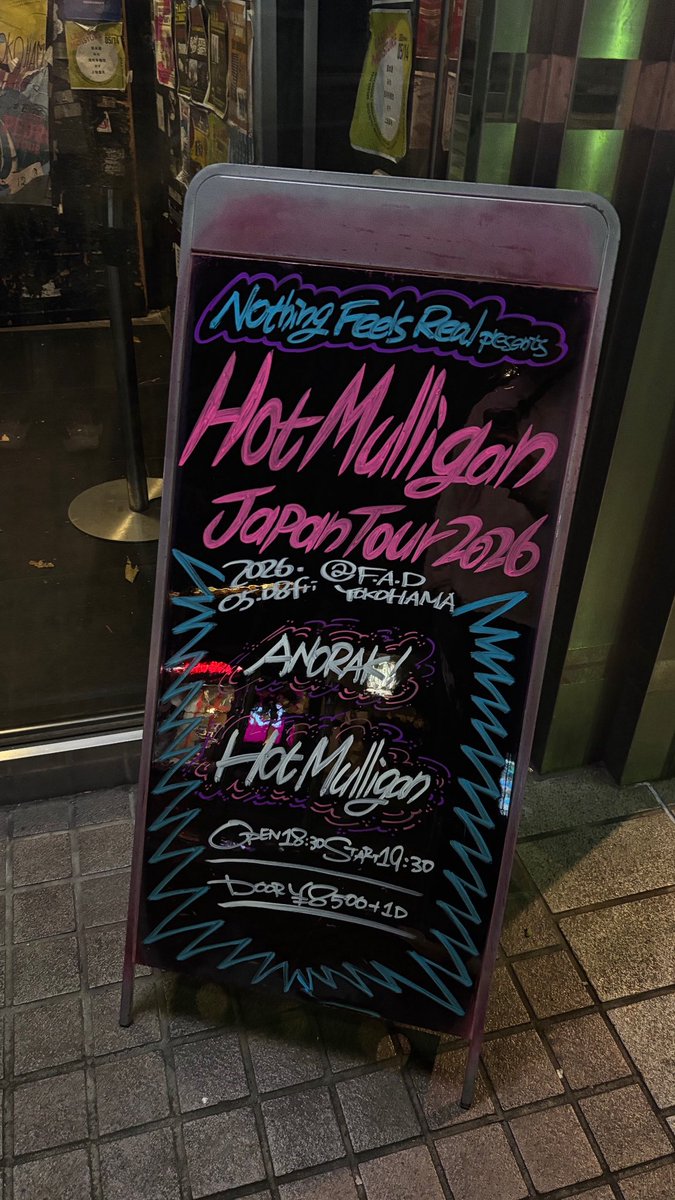 Nothing Feels Real presents
Hot Mulligan
Japan Tour 2026
2026.
05.08 Fri
@F.A.D
YOKOHAMA
ANORAK!
Hot Mulligan
OPEN 18:30 START 19:30
DOOR ¥8500+1D